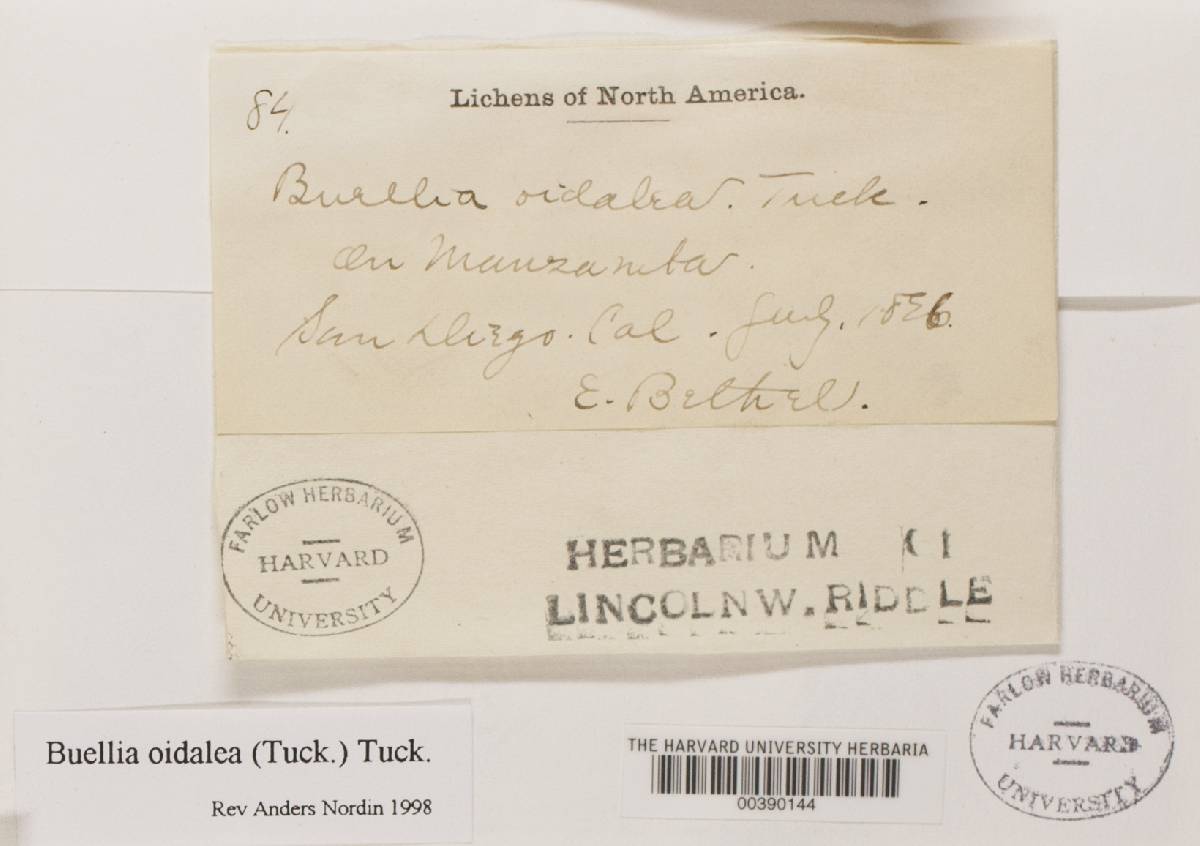 84.
Lichens of North America.
Buellia oidalea. Tuck.
on Manzanita.
San Diego. Cal. July. 1896.
E. Bethel.
FARLOW HERBARIUM
HARVARD
UNIVERSITY
HERBARIUM
LINCOLN W. RIDDLE
Buellia oidalea (Tuck.) Tuck.
Rev Anders Nordin 1998
THE HARVARD UNIVERSITY HERBARIA
00390144
FARLOW HERBARIUM
HARVARD
UNIVERSITY